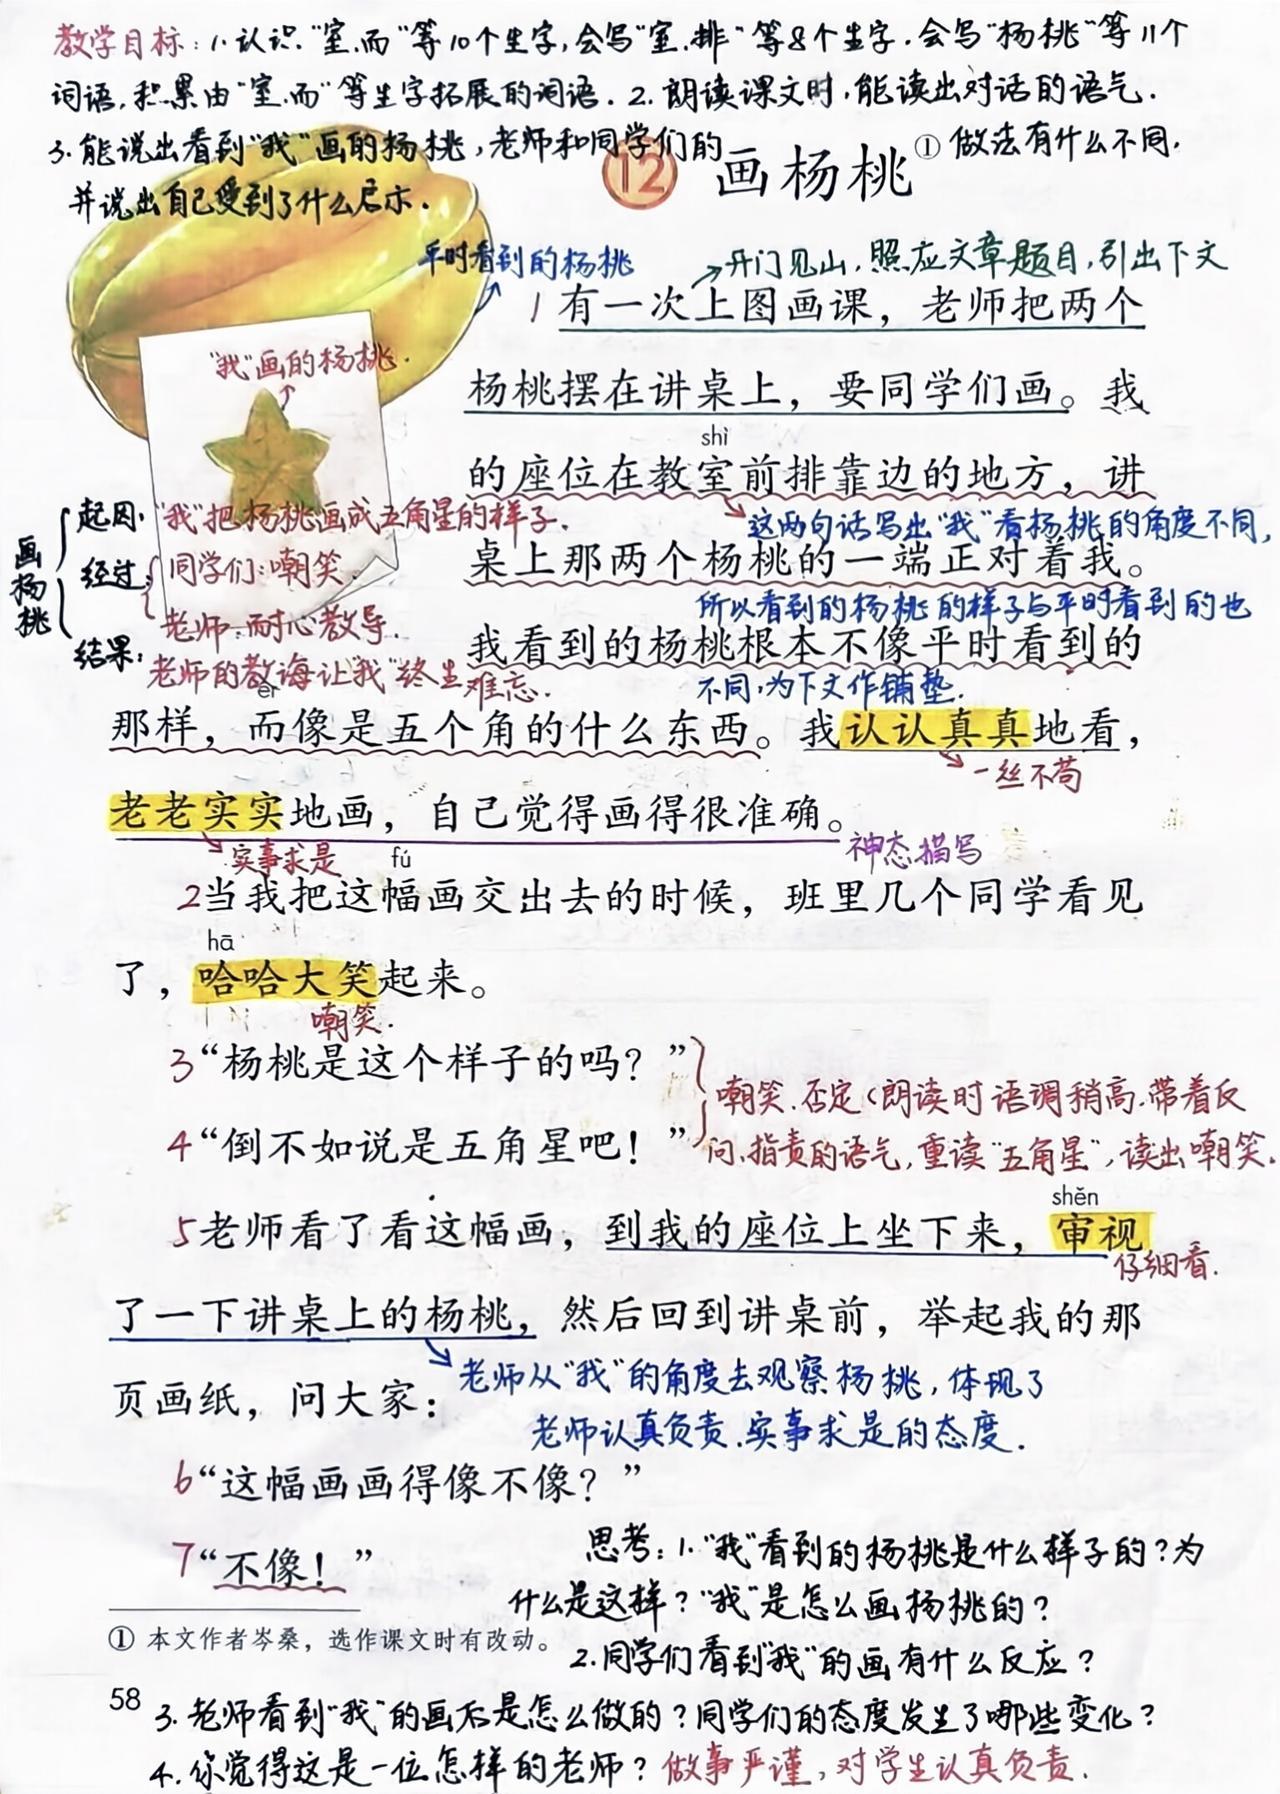 教学目标：1.认识"室、而"等10个生字，会写"室、排"等8个生字．会写"杨桃"等11个
词语，积累由"室、而"等生字拓展的词语．2.朗读课文时，能读出对话的语气．
3.能说出看到"我"画的杨桃，老师和同学们的做法有什么不同，
并说出自己受到了什么启示．
12 画杨桃①
平时看到的杨桃
开门见山，照应文章题目，引出下文
1有一次上图画课，老师把两个
"我"画的杨桃．
杨桃摆在讲桌上，要同学们画。我
shì
的座位在教室前排靠边的地方，讲
画杨桃
起因："我"把杨桃画成五角星的样子．
这两句话写出"我"看杨桃的角度不同，
桌上那两个杨桃的一端正对着我。
经过：同学们：嘲笑．
老师：耐心教导．
所以看到的杨桃的样子与平时看到的也
我看到的杨桃根本不像平时看到的
结果：老师的教诲让"我"终生难忘．
不同，为下文作铺垫．
ér
那样，而像是五个角的什么东西。我认认真真地看，
一丝不苟
老老实实地画，自己觉得画得很准确。
实事求是
神态描写
fú
2当我把这幅画交出去的时候，班里几个同学看见
hā
了，哈哈大笑起来。
嘲笑．
3“杨桃是这个样子的吗？”
4“倒不如说是五角星吧！”
嘲笑、否定（朗读时语调稍高、带着反
问、指责的语气，重读"五角星"，读出嘲笑．
shěn
5老师看了看这幅画，到我的座位上坐下来，审视
仔细看．
了一下讲桌上的杨桃，然后回到讲桌前，举起我的那
老师从"我"的角度去观察杨桃，体现了
页画纸，问大家：
老师认真负责、实事求是的态度．
6“这幅画画得像不像？”
7“不像！”
思考：1."我"看到的杨桃是什么样子的？为
什么是这样？"我"是怎么画杨桃的？
① 本文作者岑桑，选作课文时有改动。
2.同学们看到"我"的画有什么反应？
58
3.老师看到"我"的画后是怎么做的？同学们的态度发生了哪些变化？
4.你觉得这是一位怎样的老师？做事严谨，对学生认真负责．